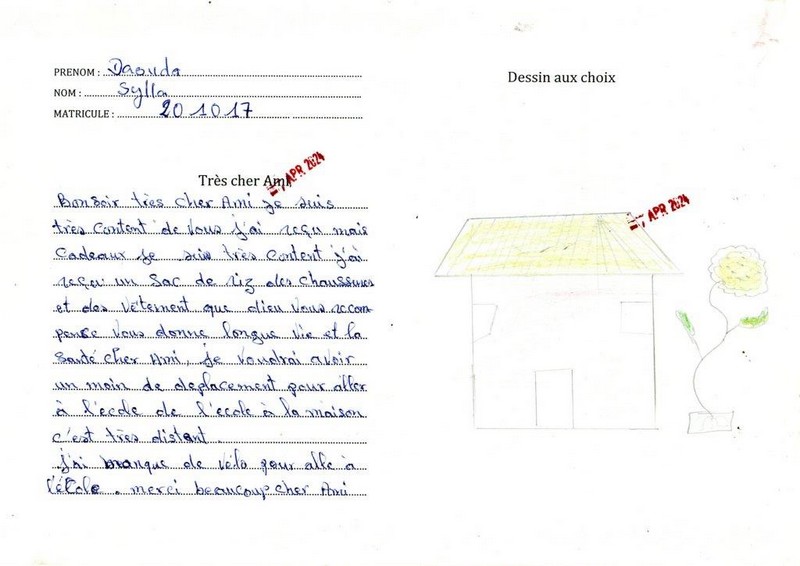 PRENOM : Daouda
NOM : Sylla
MATRICULE : 201017
Dessin aux choix
Très cher Ami,
APR 2024
Bonsoir très cher Ami je suis
très content de vous j'ai reçu mais
cadeaux je suis très content j'ai
reçu un sac de riz des chaussures
et des vêtement que dieu vous recom
pense vous donne longue vie et la
santé cher Ami, je voudrai avoir
un moin de deplacement pour aller
à l'ecole de l'ecole à la maison
c'est très distant.
j'ai manque de vélo pour alle à
l'école. merci beaucoup cher Ami
APR 2024